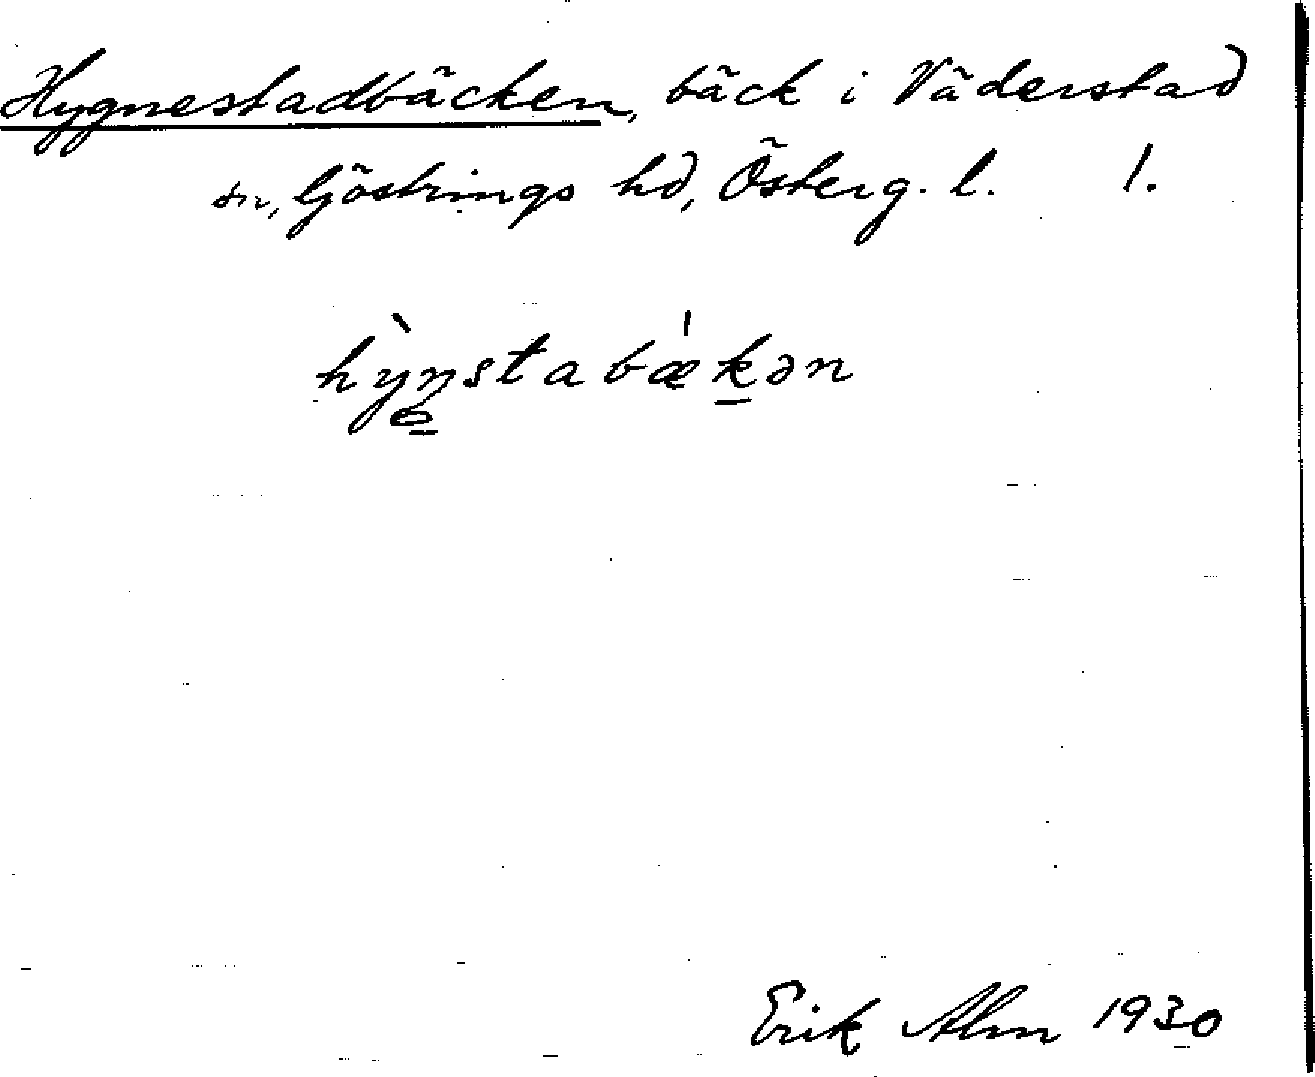 Hygnestadbäcken, bäck i Väderstad
sn, Göstrings hd, Österg. l. 1.
hỳŋstabǽkən
Erik Alm 1930